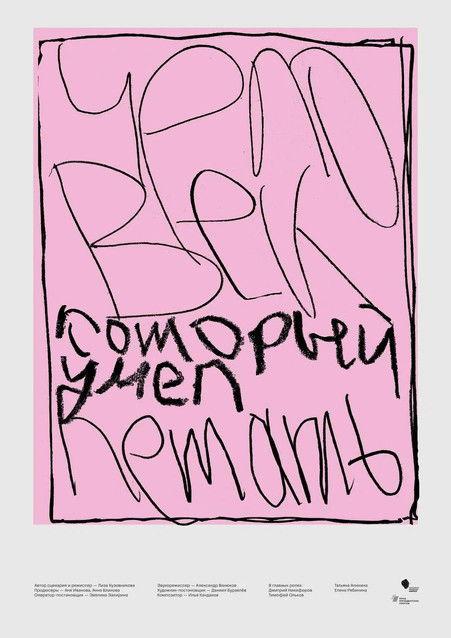 Чело
век
который
умел
летать
Автор сценария и режиссер — Лиза Кузовникова
Продюсеры — Аня Иванова, Анна Блинова
Оператор-постановщик — Эвелина Закирина
Звукорежиссер — Александр Волохов
Художник-постановщик — Даниил Буравлёв
Композитор — Илья Кандаков
В главных ролях:
Дмитрий Никифоров
Тимофей Ольхов
Татьяна Аникина
Елена Рябинина